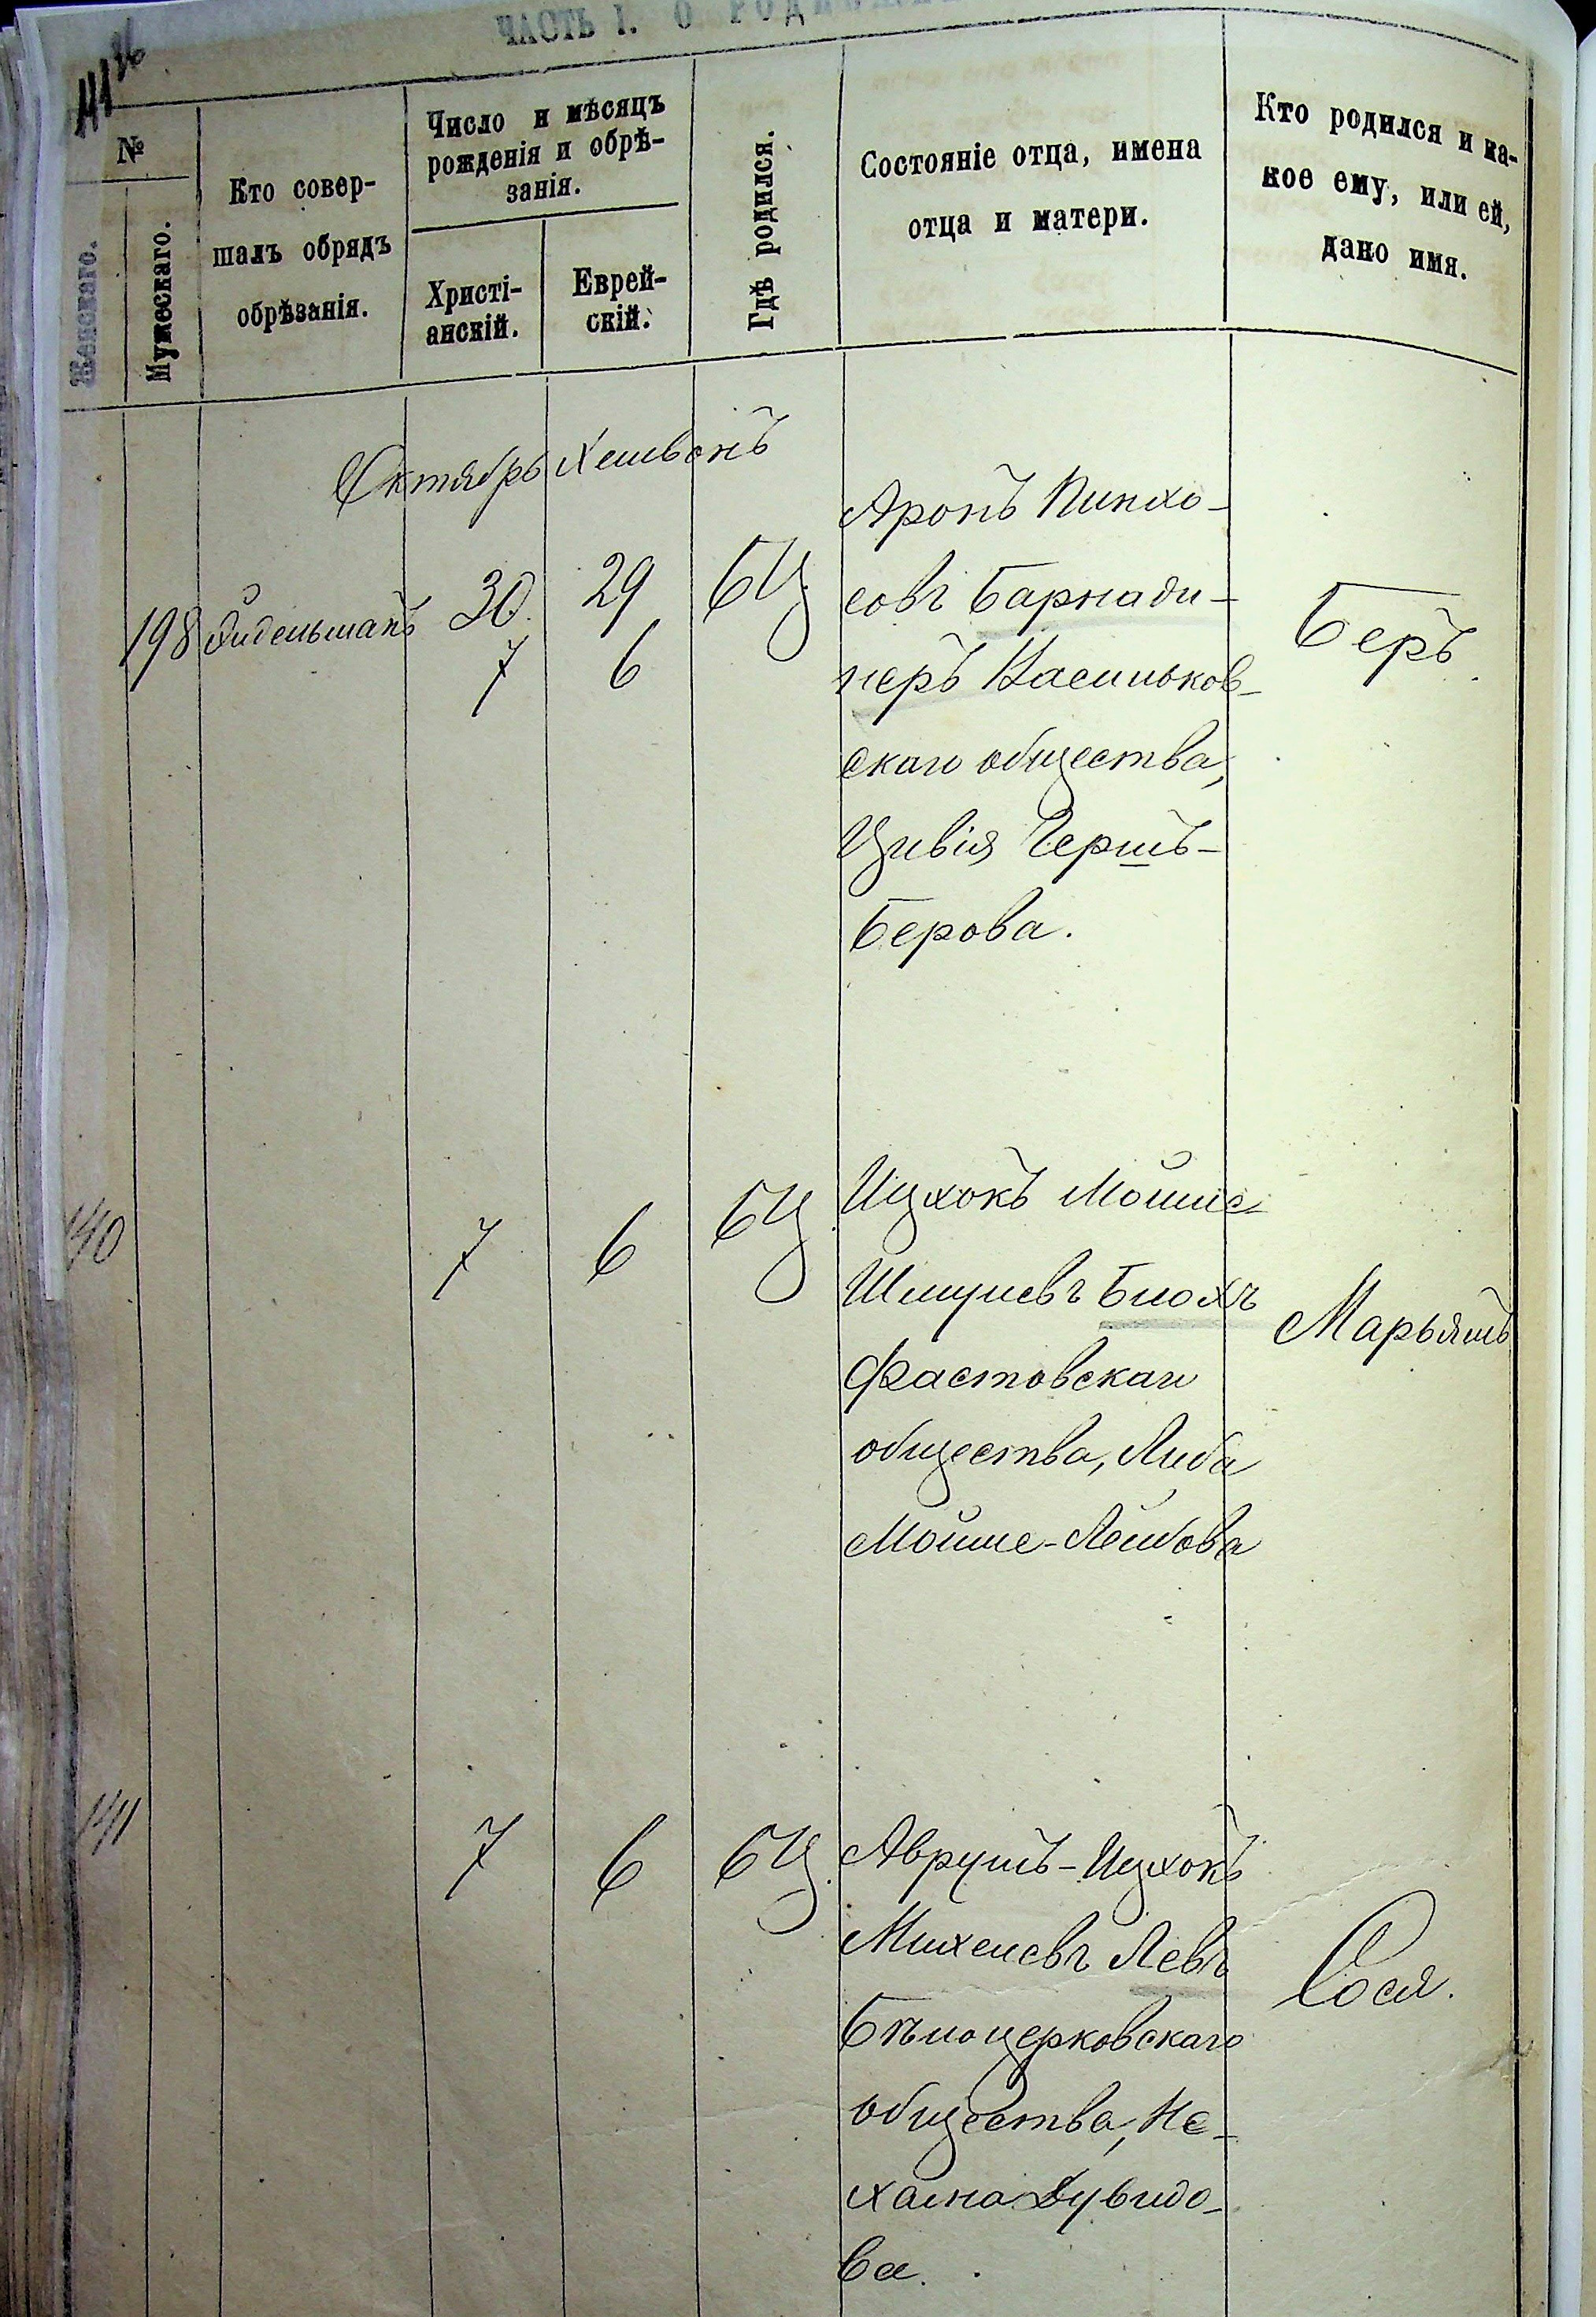 ЧАСТЬ I. О РОДИВШИХСЯ
№
Женскаго.
Мужескаго.
Кто совер-
шалъ обрядъ
обрѣзанія.
Число и мѣсяцъ
рожденія и обрѣ-
занія.
Христі-
анскій.
Еврей-
скій.
Гдѣ родился.
Состояніе отца, имена
отца и матери.
Кто родился и ка-
кое ему, или ей,
дано имя.
Октябрь Хешвонъ
198 30 29 БЦ
7 6
Аронъ Пинхо-
совъ Барнади-
неръ Васильков-
скаго общества,
Цивія Гершъ-
Берова.
Беръ
140 7 6 БЦ
Ицхокъ Мойше
Шмулевъ Блохъ
Фастовскаго
общества, Либа
Мойше-Лейбова
Марьямъ
141 7 6 БЦ
Аврумъ-Ицхокъ
Михелевъ Левъ
Бѣлоцерковскаго
общества, Не-
хама Дувидо-
ва.
Сося.